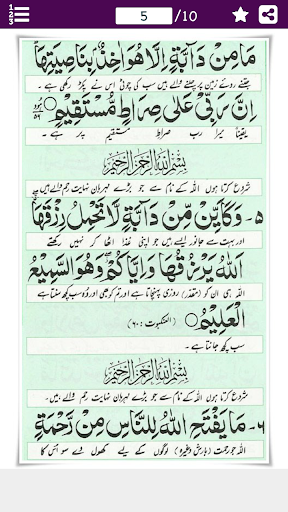 5 /10
مَا مِنْ دَآبَّةٍ اِلَّا هُوَ اٰخِذٌۢ بِنَاصِيَتِهَا
جتنے روئے زمین پر چلنے والے ہیں سب کی چوٹی اس نے پکڑ رکھی ہے
اِنَّ رَبِّيْ عَلٰى صِرَاطٍ مُّسْتَقِيْمٍ ○ ہود ۵۶
یقیناً میرا رب صراط مستقیم پر ہے۔
بِسْمِ اللهِ الرَّحْمٰنِ الرَّحِيْمِ
شروع کرتا ہوں اللہ کے نام سے جو بڑے مہربان نہایت رحم والے ہیں
۵۔ وَكَاَيِّنْ مِّنْ دَآبَّةٍ لَّا تَحْمِلُ رِزْقَهَا
اور بہت سے جانور ایسے ہیں جو اپنی غذا اٹھا کر نہیں رکھتے
اَللهُ يَرْزُقُهَا وَاِيَّاكُمْ وَهُوَ السَّمِيْعُ
اللہ ہی ان کو (مقدر) روزی پہنچاتا ہے اور تم کو بھی اور وہ سب کچھ سنتا ہے
الْعَلِيْمُ ○ (العنکبوت: ۶۰)
سب کچھ جانتا ہے۔
بِسْمِ اللهِ الرَّحْمٰنِ الرَّحِيْمِ
شروع کرتا ہوں اللہ کے نام سے جو بڑے مہربان نہایت رحم والے ہیں۔
۶۔ مَا يَفْتَحِ اللهُ لِلنَّاسِ مِنْ رَّحْمَةٍ
اللہ جو رحمت (بارش وغیرہ) لوگوں کے لیے کھول دے سو اس کا